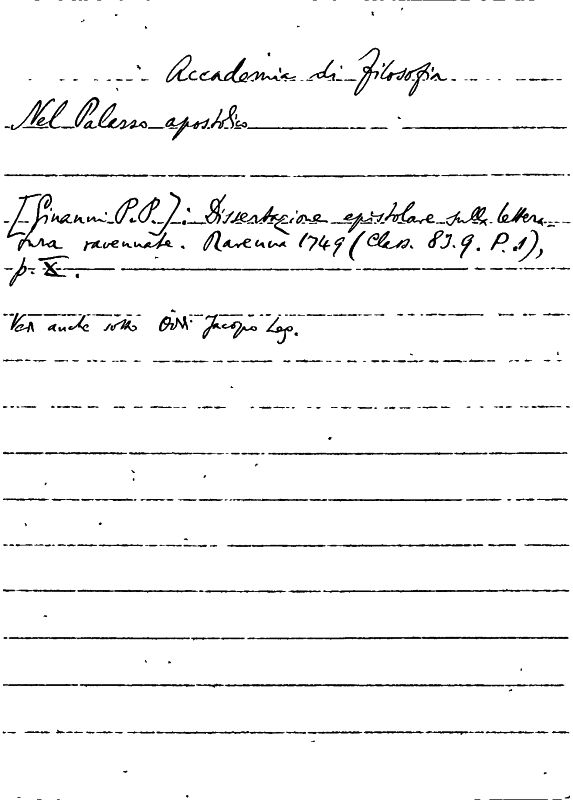 Accademia di Filosofia
Nel Palazzo apostolico
[Ginanni P.P.]: Dissertazione epistolare sulla lettera-
tura ravennate. Ravenna 1749 (Class. 83.9. P. 1),
p. X.
Ved anche sotto Jacopo